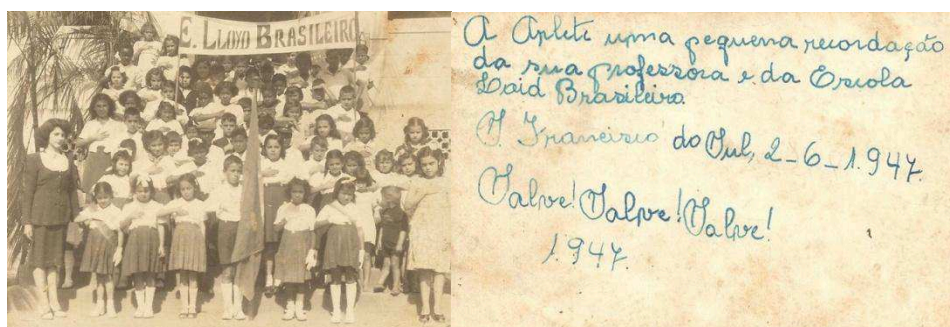 E. LLOYD BRASILEIRO
A Arlete uma pequena recordação
da sua professora e da Escola
Loid Brasileiro.
S. Francisco do Sul, 2-6-1.947.
Salve! Salve! Salve!
1.947.